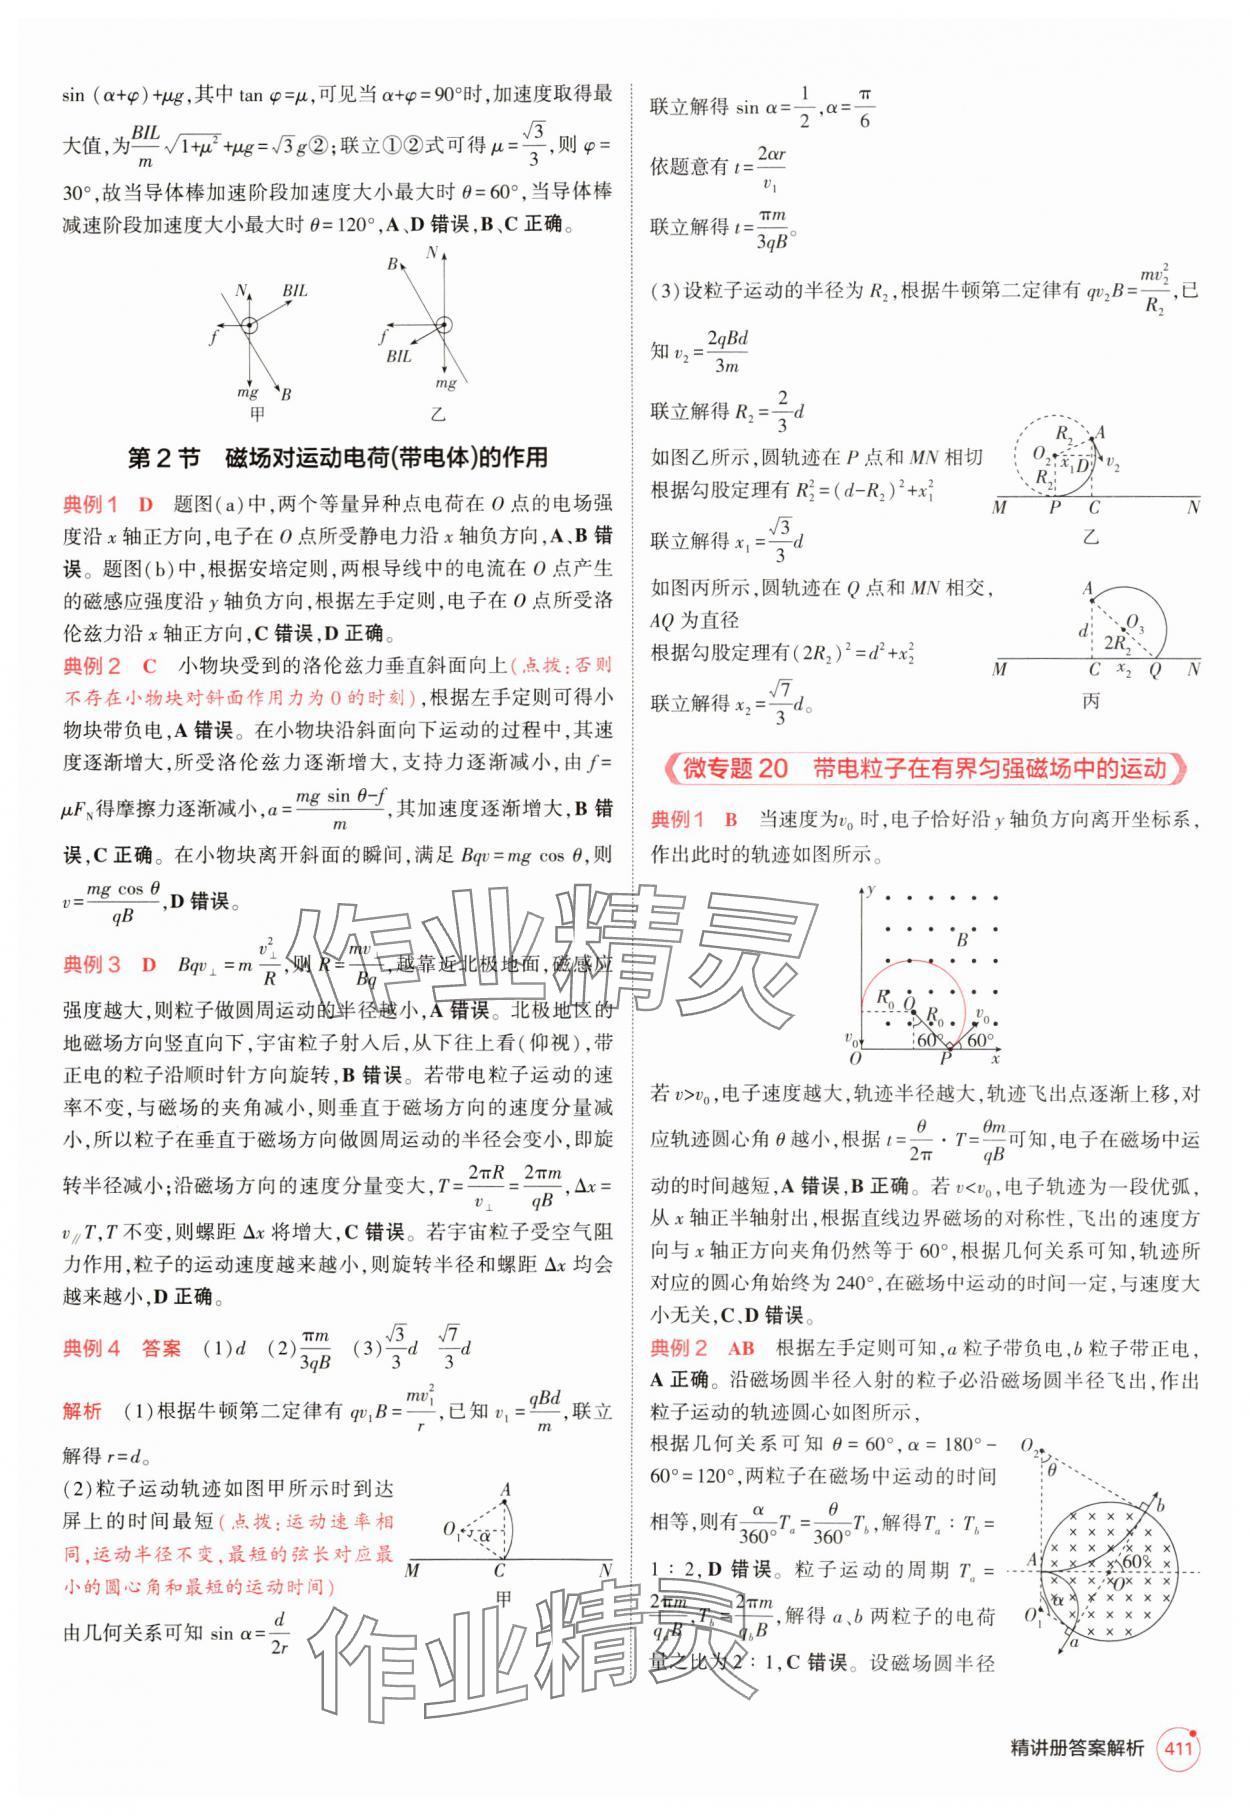 sin (α+φ)+μg,其中 tan φ=μ,可见当 α+φ=90°时,加速度取得最
大值,为$\frac{BIL}{m}\sqrt{1+μ^2}$+μg=$\sqrt{3}$g②;联立①②式可得 μ=$\frac{\sqrt{3}}{3}$,则 φ=
30°,故当导体棒加速阶段加速度大小最大时 θ=60°,当导体棒
减速阶段加速度大小最大时 θ=120°,A、D 错误,B、C 正确。
N BIL f mg B
甲
B N f BIL mg
乙
第 2 节 磁场对运动电荷(带电体)的作用
典例 1 D 题图(a)中,两个等量异种点电荷在 O 点的电场强
度沿 x 轴正方向,电子在 O 点所受静电力沿 x 轴负方向,A、B 错
误。题图(b)中,根据安培定则,两根导线中的电流在 O 点产生
的磁感应强度沿 y 轴负方向,根据左手定则,电子在 O 点所受洛
伦兹力沿 x 轴正方向,C 错误,D 正确。
典例 2 C 小物块受到的洛伦兹力垂直斜面向上(点拨:否则
不存在小物块对斜面作用力为 0 的时刻),根据左手定则可得小
物块带负电,A 错误。在小物块沿斜面向下运动的过程中,其速
度逐渐增大,所受洛伦兹力逐渐增大,支持力逐渐减小,由 f=
μF_N得摩擦力逐渐减小,a=$\frac{mg sin θ-f}{m}$,其加速度逐渐增大,B 错
误,C 正确。在小物块离开斜面的瞬间,满足 Bqv=mg cos θ,则
v=$\frac{mg cos θ}{qB}$,D 错误。
典例 3 D Bqv_⊥=m$\frac{v_⊥^2}{R}$,则 R=$\frac{mv_⊥}{Bq}$,越靠近北极地面,磁感应
强度越大,则粒子做圆周运动的半径越小,A 错误。北极地区的
地磁场方向竖直向下,宇宙粒子射入后,从下往上看(仰视),带
正电的粒子沿顺时针方向旋转,B 错误。若带电粒子运动的速
率不变,与磁场的夹角减小,则垂直于磁场方向的速度分量减
小,所以粒子在垂直于磁场方向做圆周运动的半径会变小,即旋
转半径减小;沿磁场方向的速度分量变大,T=$\frac{2πR}{v_⊥}$=$\frac{2πm}{qB}$,Δx=
v_∥T,T 不变,则螺距 Δx 将增大,C 错误。若宇宙粒子受空气阻
力作用,粒子的运动速度越来越小,则旋转半径和螺距 Δx 均会
越来越小,D 正确。
典例 4 答案 (1)d (2)$\frac{πm}{3qB}$ (3)$\frac{\sqrt{3}}{3}$d $\frac{\sqrt{7}}{3}$d
解析 (1)根据牛顿第二定律有 qv_1B=$\frac{mv_1^2}{r}$,已知 v_1=$\frac{qBd}{m}$,联立
解得 r=d。
(2)粒子运动轨迹如图甲所示时到达
屏上的时间最短(点拨:运动速率相
同,运动半径不变,最短的弦长对应最
小的圆心角和最短的运动时间)
A O_1 α M C N
甲
由几何关系可知 sin α=$\frac{d}{2r}$
联立解得 sin α=$\frac{1}{2}$,α=$\frac{π}{6}$
依题意有 t=$\frac{2αr}{v_1}$
联立解得 t=$\frac{πm}{3qB}$。
(3)设粒子运动的半径为 R_2,根据牛顿第二定律有 qv_2B=$\frac{mv_2^2}{R_2}$,已
知 v_2=$\frac{2qBd}{3m}$
联立解得 R_2=$\frac{2}{3}$d
如图乙所示,圆轨迹在 P 点和 MN 相切
根据勾股定理有 R_2^2=(d-R_2)^2+x_1^2
联立解得 x_1=$\frac{\sqrt{3}}{3}$d
R_2 A O_2 x_1 D v_2 R_2 M P C N
乙
如图丙所示,圆轨迹在 Q 点和 MN 相交,
AQ 为直径
根据勾股定理有(2R_2)^2=d^2+x_2^2
联立解得 x_2=$\frac{\sqrt{7}}{3}$d。
A d O_3 2R_2 M C x_2 Q N
丙
微专题 20 带电粒子在有界匀强磁场中的运动
典例 1 B 当速度为v_0 时,电子恰好沿 y 轴负方向离开坐标系,
作出此时的轨迹如图所示。
y B R_0 O R_0 v_0 v_0 60° 60° O P x
若 v>v_0,电子速度越大,轨迹半径越大,轨迹飞出点逐渐上移,对
应轨迹圆心角 θ 越小,根据 t=$\frac{θ}{2π}$·T=$\frac{θm}{qB}$可知,电子在磁场中运
动的时间越短,A 错误,B 正确。若 v<v_0,电子轨迹为一段优弧,
从 x 轴正半轴射出,根据直线边界磁场的对称性,飞出的速度方
向与 x 轴正方向夹角仍然等于 60°,根据几何关系可知,轨迹所
对应的圆心角始终为 240°,在磁场中运动的时间一定,与速度大
小无关,C、D 错误。
典例 2 AB 根据左手定则可知,a 粒子带负电,b 粒子带正电,
A 正确。沿磁场圆半径入射的粒子必沿磁场圆半径飞出,作出
粒子运动的轨迹圆心如图所示,
根据几何关系可知 θ=60°,α=180°-
60°=120°,两粒子在磁场中运动的时间
相等,则有$\frac{α}{360°}$T_a=$\frac{θ}{360°}$T_b,解得T_a∶T_b=
1∶2,D 错误。粒子运动的周期 T_a=
$\frac{2πm}{q_aB}$,T_b=$\frac{2πm}{q_bB}$,解得 a、b 两粒子的电荷
量之比为 2∶1,C 错误。设磁场圆半径
O_2 θ b A 60° O α O_1 a
作业精灵
作业精灵
精讲册答案解析 411